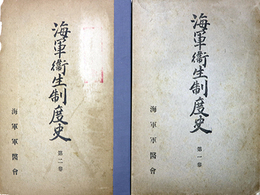 海軍衞生制度史
第二巻
海軍軍醫會
海軍衞生制度史
第一巻
海軍軍醫會